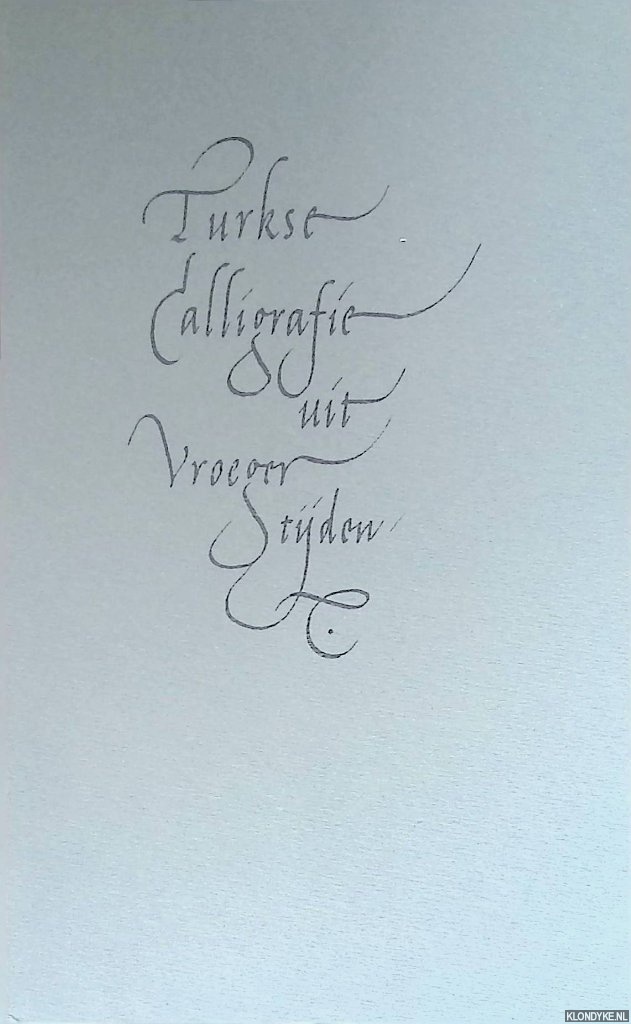 Turkse
Calligrafie
uit
Vroeger
Stijden
KLONDYKE.NL